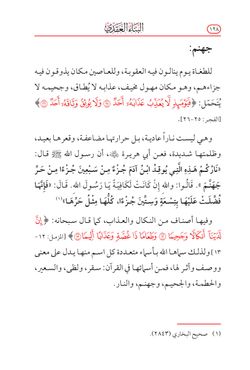 ١٩٨
البناء العقدي
جهنم:
للطغاة يوم ينالون فيه العقوبة، وللعاصين مكان يذوقون فيه
جزاءهم، وهو مكان مهول مخيف، عذابه لا يُطاق، وجحيمه لا
يُتحمل: ﴿فَيَوْمَئِذٍ لَّا يُعَذِّبُ عَذَابَهُ أَحَدٌ ۝ وَلَا يُوثِقُ وَثَاقَهُ أَحَدٌ ۝﴾
[الفجر: ٢٥-٢٦].
وهي ليست ناراً عادية، بل حرارتها مضاعفة، وقعرها بعيد،
وظلمتها شديدة، فعن أبي هريرة أن رسول الله ﷺ قال:
«نَارُكُمْ هَذِهِ الَّتِي يُوقِدُ ابْنُ آدَمَ جُزْءٌ مِنْ سَبْعِينَ جُزْءًا مِنْ حَرِّ
جَهَنَّمَ». قَالُوا: وَاللهِ إِنْ كَانَتْ لَكَافِيَةً يَا رَسُولَ اللهِ. قَالَ: «فَإِنَّهَا
فُضِّلَتْ عَلَيْهَا بِتِسْعَةٍ وَسِتِّينَ جُزْءًا، كُلُّهَا مِثْلُ حَرِّهَا»(١)
وفيها أصناف من النكال والعذاب، كما قال سبحانه: ﴿إِنَّ
لَدَيْنَا أَنكَالًا وَجَحِيمًا ۝ وَطَعَامًا ذَا غُصَّةٍ وَعَذَابًا أَلِيمًا ۝﴾ [المزمل: ١٢-
١٣] ولذلك سماها الله بأسماء متعددة كل اسم منها يدل على معنى
ووصف وأثر لها، فمن أسمائها في القرآن: سقر، ولظى، والسعير،
والحطمة، والجحيم، وجهنم، والنار.
(١) صحيح البخاري (٢٨٤٣).